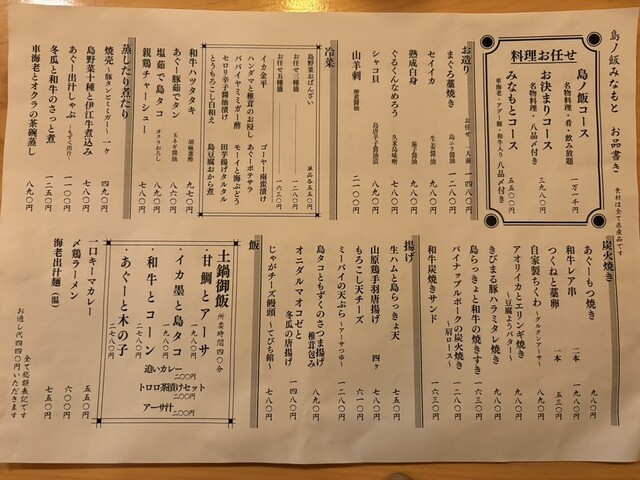 島ノ飯みなもと お品書き
食材は全て県産品です
料理お任せ
島ノ飯コース
名物料理・肴・飲み放題
一万一千円
お決まりコース
名物料理・八品〆付き
三九八〇円
みなもとコース
車海老・アグー豚・和牛入り 八品〆付き
五五〇〇円
お造り
お任せ 一人前 一四八〇円
まぐろ藁焼き
島ニラ醤油 一二八〇円
セイイカ
生姜醤油
熟成白身
ぐるくんなめろう
久米島味噌 七八〇円
シャコ貝
島唐辛子醤油
山羊刺
二一〇〇円
冷菜
島野菜おばんざい
単品各五五〇円
お任せ三種盛 一二八〇円
お任せ五種盛 一六三〇円
イカ金平
ハンダマと椎茸のお浸し
パパイヤミミガー酢
セロリ辛子醤油漬け
とうもろこし白和え
ゴーヤー南蛮漬け
あぐーポテサラ
モーイと海ぶどう
田芋揚げタルタル
島豆腐おから煮
和牛ハツタタキ
胡麻葱酢 九七〇円
あぐー豚茹でタン
玉ネギ醤油 八九〇円
塩茹で島タコ
オクラおろし 九六〇円
親鶏チャーシュー 七八〇円
蒸したり煮たり
焼売〜豚タンとミミガー〜 一ヶ 四九〇円
島野菜十種と伊江牛煮込み 七八〇円
あぐー出汁しゃぶ
〜もずく出汁〜 一二八〇円
冬瓜と和牛のさっと煮 一二五〇円
車海老とオクラの茶碗蒸し 八九〇円
炭火焼き
あぐーもつ焼き 九八〇円
和牛レア串 二本 一九八〇円
つくねと藁卵 一本 五三〇円
自家製ちくわ〜グルクンアーサ〜 八九〇円
アオリイカとエリンギ焼き
〜豆腐ようバター〜 九八〇円
きびまる豚ハラミタレ焼き 九七〇円
島らっきょと和牛の焼きすき 一六三〇円
パイナップルポークの炭火焼き
〜肩ロース〜 一二八〇円
和牛炭焼きサンド 一六三〇円
揚げ
生ハムと島らっきょ天 七五〇円
山原鶏手羽唐揚げ 四ヶ 七八〇円
もろこし天チーズ 六一〇円
ミーバイの天ぷら〜アーサつゆ〜 一二八〇円
島タコともずくのさつま揚げ
椎茸包み 八九〇円
オニダルマオコゼと
冬瓜の唐揚げ 一四八〇円
じゃがチーズ饅頭〜てびち餡〜 七八〇円
飯
土鍋御飯 所要時間四〇分
甘鯛とアーサ 一九八〇円
イカ墨と島タコ 一九八〇円
和牛とコーン 二七八〇円
あぐーと木の子 二七八〇円
追いカレー 二〇〇円
トロロ茶漬けセット 二〇〇円
アーサ汁 二〇〇円
一口キーマカレー 五五〇円
〆鶏ラーメン 六〇〇円
海老出汁麺(温) 七八〇円
全て総額表記です
お通し代四四〇円いただきます